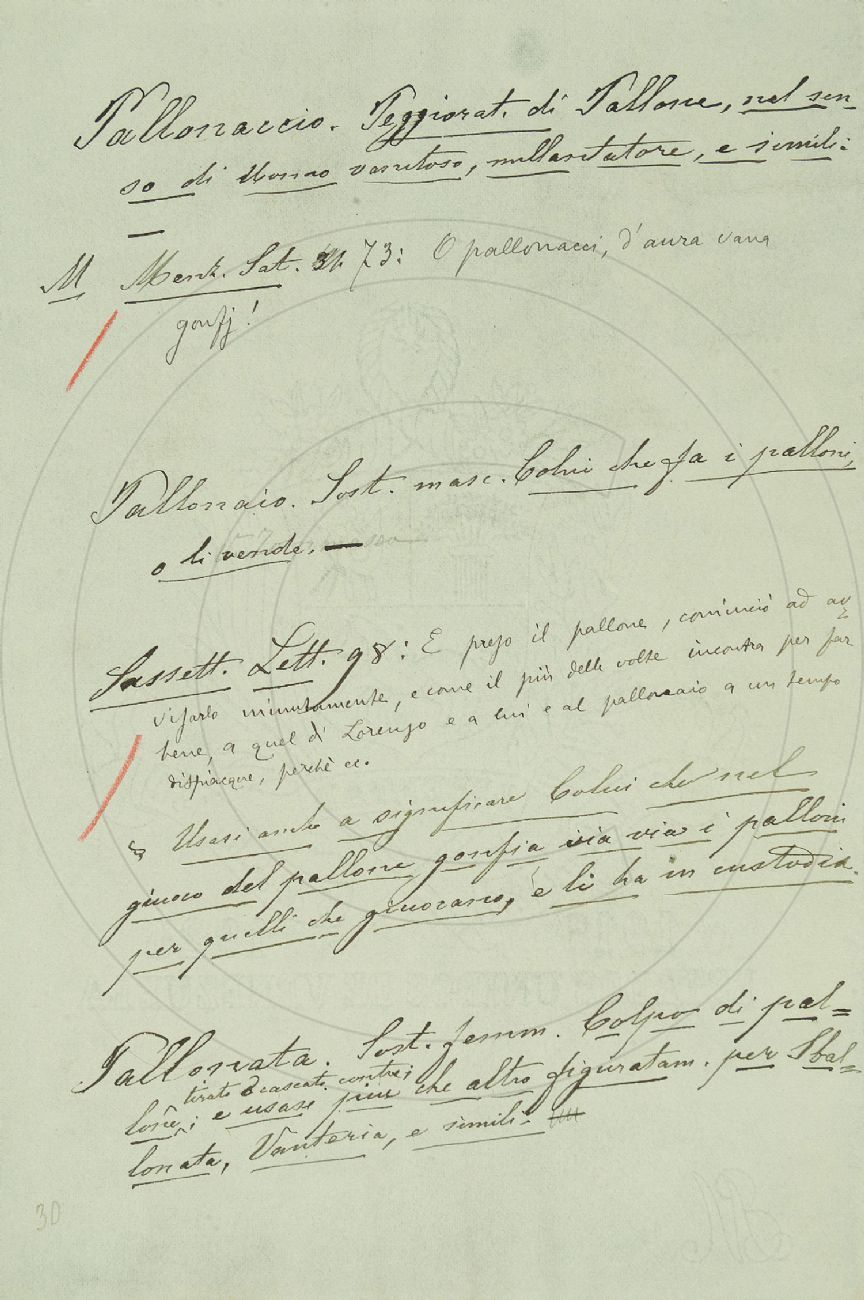 Pallonaccio. Peggiorat. di Pallone, nel sen-
so di Uomo vanitoso, millantatore, e simili:
—
M Menz. Sat. 73: O pallonacci, d'aura vana
gonfj!
Pallonaio. Sost. masc. Colui che fa i palloni,
o li vende. —
Sassett. Lett. 98: E preso il pallone, cominciò ad av-
visarlo minutamente, e come il più delle volte incontra per far
bene, a quel di Lorenzo e a lui e al pallonaio a un tempo
dispiacque, perchè ec.
Usasi anche a significare Colui che nel
giuoco del pallone gonfia via via i palloni
per quelli che giuocano, e li ha in custodia.
Pallonata. Sost. femm. Colpo di pal=
tirato o cascato contro;
lone; e usasi più che altro figuratam. per Sbal=
lonata, Vanteria, e simili.
30